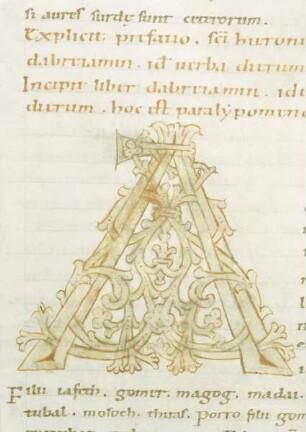 si aures surdę sunt ceterorum.
Explicit prefatio. sci hieroni
dabreiamin. id verba dierum
Incipit liber dabreiamin. id e
dierum. hoc est paralypomeno
A
Filii iafeth. gomer. magog. madai.
tubal. mosoch. thiras. Porro filii gom